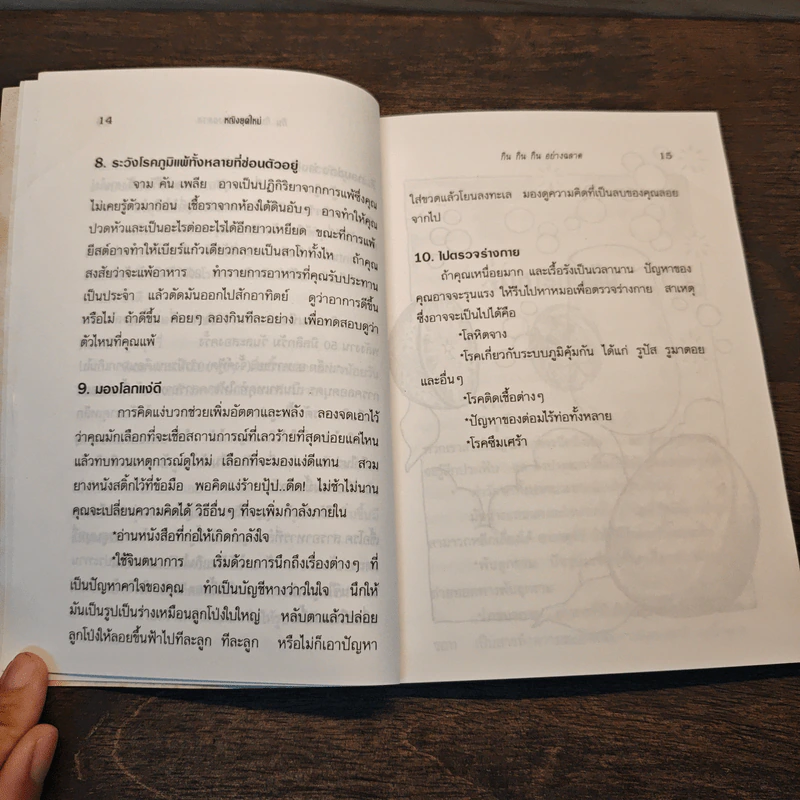 14
หญิงยุคใหม่
8. ระวังโรคภูมิแพ้ทั้งหลายที่ซ่อนตัวอยู่
จาม คัน เพลีย อาจเป็นปฏิกิริยาจากการแพ้ซึ่งคุณ
ไม่เคยรู้ตัวมาก่อน เชื้อราจากห้องใต้ดินอับๆ อาจทำให้คุณ
ปวดหัวและเป็นอะไรต่ออะไรได้อีกยาวเหยียด ขณะที่การแพ้
ยีสต์อาจทำให้เบียร์แก้วเดียวกลายเป็นสาโททั้งไห ถ้าคุณ
สงสัยว่าจะแพ้อาหาร ทำรายการอาหารที่คุณรับประทาน
เป็นประจำ แล้วตัดมันออกไปสักอาทิตย์ ดูว่าอาการดีขึ้น
หรือไม่ ถ้าดีขึ้น ค่อยๆ ลองกินทีละอย่าง เพื่อทดสอบดูว่า
ตัวไหนที่คุณแพ้
9. มองโลกแง่ดี
การคิดแง่บวกช่วยเพิ่มอัตตาและพลัง ลองจดเอาไว้
ว่าคุณมักเลือกที่จะเชื่อสถานการณ์ที่เลวร้ายที่สุดบ่อยแค่ไหน
แล้วทบทวนเหตุการณ์ดูใหม่ เลือกที่จะมองแง่ดีแทน สวม
ยางหนังสติ๊กไว้ที่ข้อมือ พอคิดแง่ร้ายปุ้ป..ดีด! ไม่ช้าไม่นาน
คุณจะเปลี่ยนความคิดได้ วิธีอื่นๆ ที่จะเพิ่มกำลังภายใน
*อ่านหนังสือที่ก่อให้เกิดกำลังใจ
*ใช้จินตนาการ เริ่มด้วยการนึกถึงเรื่องต่างๆ ที่
เป็นปัญหาคาใจของคุณ ทำเป็นบัญชีหางว่าวในใจ นึกให้
มันเป็นรูปเป็นร่างเหมือนลูกโป่งใบใหญ่ หลับตาแล้วปล่อย
ลูกโป่งให้ลอยขึ้นฟ้าไปทีละลูก ทีละลูก หรือไม่ก็เอาปัญหา
กิน กิน กิน อย่างฉลาด
15
ใส่ขวดแล้วโยนลงทะเล มองดูความคิดที่เป็นลบของคุณลอย
จากไป
10. ไปตรวจร่างกาย
ถ้าคุณเหนื่อยมาก และเรื้อรังเป็นเวลานาน ปัญหาของ
คุณอาจจะรุนแรง ให้รีบไปหาหมอเพื่อตรวจร่างกาย สาเหตุ
ซึ่งอาจจะเป็นไปได้คือ
*โลหิตจาง
*โรคเกี่ยวกับระบบภูมิคุ้มกัน ได้แก่ รูปัส รูมาตอย
และอื่นๆ
*โรคติดเชื้อต่างๆ
*ปัญหาของต่อมไร้ท่อทั้งหลาย
*โรคซึมเศร้า